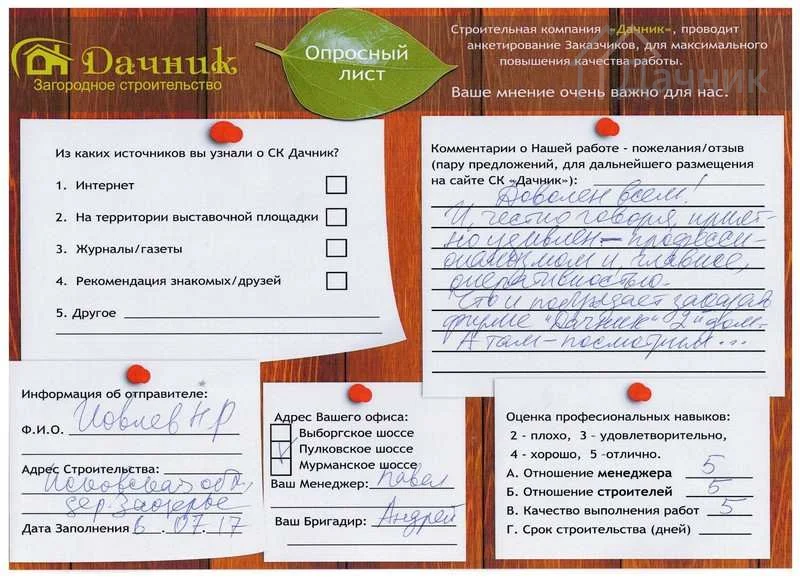 Дачник
Загородное строительство
Опросный
лист
Строительная компания «Дачник», проводит
анкетирование Заказчиков, для максимального
повышения качества работы.
Ваше мнение очень важно для нас.
Дачник
Из каких источников вы узнали о СК Дачник?
1. Интернет
2. На территории выставочной площадки
3. Журналы/газеты
4. Рекомендация знакомых/друзей
5. Другое
Комментарии о Нашей работе - пожелания/отзыв
(пару предложений, для дальнейшего размещения
на сайте СК «Дачник»):
Доволен всем!
И, честно говоря, прият-
но удивлен - професси-
онализмом и, главное,
оперативностью.
Что и подтолкнет заказать
фирме "Дачник" 2й дом.
А там - посмотрим...
Информация об отправителе:
Ф.И.О. Иовлев Н Р
Адрес Строительства:
Псковская обл,
дер. Заозерье
Дата Заполнения 6 .07.17
Адрес Вашего офиса:
Выборгское шоссе
Пулковское шоссе
Мурманское шоссе
Ваш Менеджер: Павел
Ваш Бригадир: Андрей
Оценка профессиональных навыков:
2 - плохо, 3 - удовлетворительно,
4 - хорошо, 5 -отлично.
А. Отношение менеджера 5
Б. Отношение строителей 5
В. Качество выполнения работ 5
Г. Срок строительства (дней)